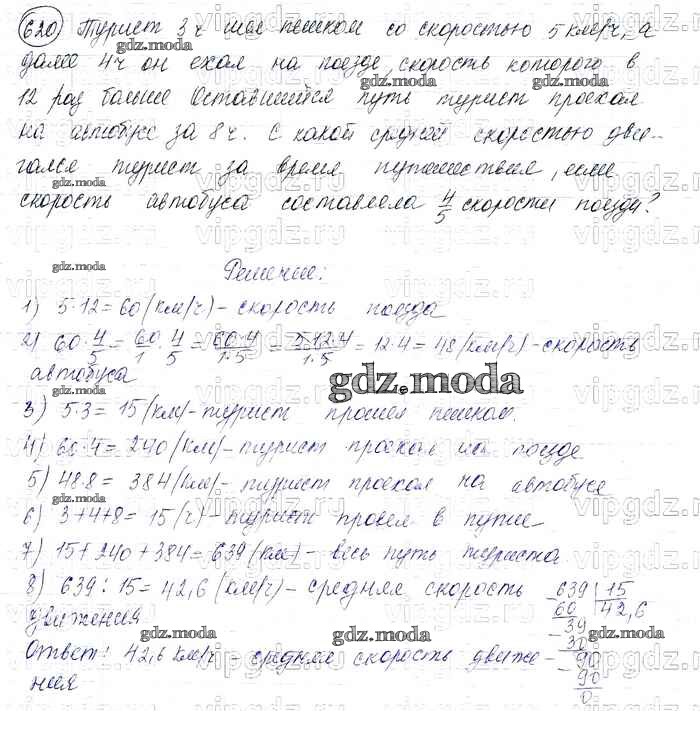 620 Турист 3 ч шел пешком со скоростью 5 км/ч, а
далее 4 ч он ехал на поезде, скорость которого в
12 раз больше Оставшийся путь турист проехал
на автобусе за 8 ч. С какой средней скоростью дви-
гался турист за время путешествия, если
скорость автобуса составляла 4/5 скорости поезда?
Решение:
1) 5·12=60 (км/ч) - скорость поезда
2) 60·4/5 = 60/1·4/5 = 60·4/1·5 = 5·12·4/1·5 = 12·4=48 (км/ч) - скорость
автобуса
3) 5·3=15 (км) - турист прошел пешком.
4) 60·4=240 (км) - турист проехал на поезде
5) 48·8=384 (км) - турист проехал на автобусе
6) 3+4+8=15 (ч) - турист провел в пути
7) 15+240+384=639 (км) - весь путь туриста.
8) 639:15=42,6 (км/ч) - средняя скорость
движения
639 15
60 42,6
39
30
90
90
0
Ответ: 42,6 км/ч - средняя скорость движе-
ния
gdz.moda
vipgdz.ru